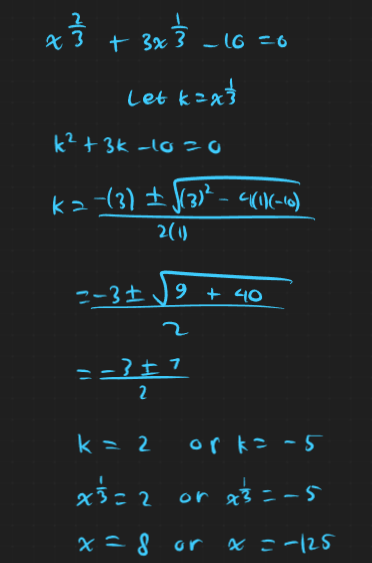 x^{2/3} + 3x^{1/3} - 10 = 0
Let k = x^{1/3}
k² + 3k - 10 = 0
k = (-(3) ± √((3)² - 4(1)(-10))) / 2(1)
= (-3 ± √(9 + 40)) / 2
= (-3 ± 7) / 2
k = 2 or k = -5
x^{1/3} = 2 or x^{1/3} = -5
x = 8 or x = -125